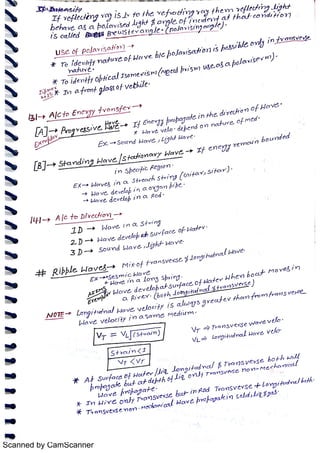 If reflecting ray is ⊥ to the refracting ray them reflecting light
behave as a polarised light & angle of incident at that condition
is called Brewster angle. (polarising angle).
Use of polarisation →
* To Identify nature of Wave b/c polarisation is possible only in transverse
nature.
* To identify optical Isomerism (Nicol prism use as a polariser).
* In a front glass of vehicle.
[3] → A/c to Energy transfer →
[A] → Progressive Wave → If Energy propagate in the direction of Wave.
* Wave velo. depend on nature of med.
Ex → Sound Wave, Light Wave.
[B] → Standing Wave / Stationary Wave → If energy remain bounded
in specific Region.
Ex → Waves in a Streach String (Guitar, Sitar).
→ Wave develop in a organ pipe.
→ Wave develop in a Rod.
[4] → A/c to Direction →
1D → Wave in a String
2D → Wave develop at surface of Water.
3D → Sound Wave, Light Wave.
# Ripple Waves → Mix of transverse & Longitudnal Wave.
Ex → Sesmic Wave
* Wave in a long Spring.
Wave develop at surface of Water When boat moves in
a River. (both longitudnal & transverse)
NOTE → Longitudnal Wave velocity is always greater than from transverse
Wave velocity in a same medium.
V_T = V_L √(Strain)
V_T → Transverse wave velo.
V_L → longitudnal Wave velo
Strain < 1
V_T < V_L
* At Surface of Water / liq. longitudnal & Transverse both will
propagate but at depth of liq. only Transverse non-mechanical
Wave propagate.
* In Wire only Transverse but in Rod Transverse + Longitudnal both.
* Transverse non-mechanical Wave propagate in solid, liq, gas.
Scanned by CamScanner